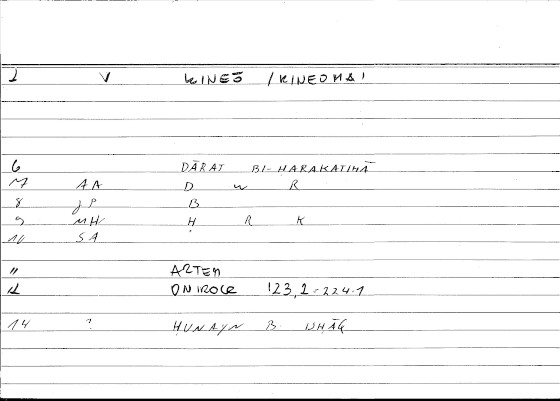 1 V KINEŌ /KINEOMAI
6 DĀRAT BI-ḤARAKATIHĀ
7 AA D W R
8 JP B
9 MH Ḥ R K
10 SA
11 ARTEM
12 ONIROCR 123,2-224.1
14 ? HUNAYN B. ISHĀQ